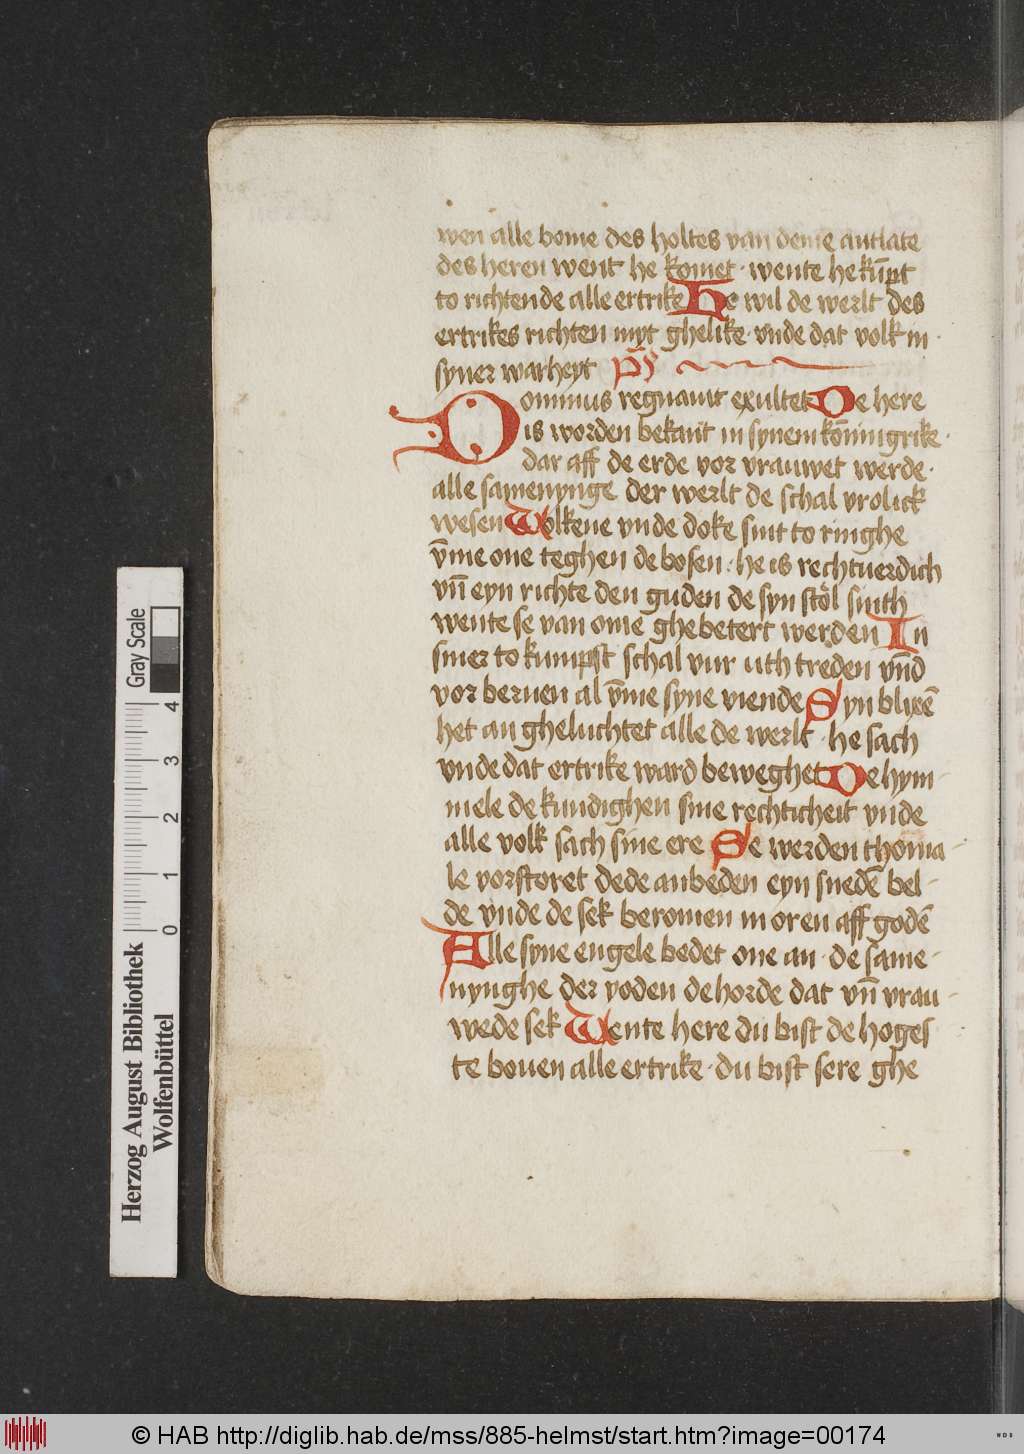 wen alle bome des holtes van deme antlate
des heren went he komet · wente he kūpt
to richtende alle ertrike He wil de werlt des
ertrikes richten myt ghelike · vnde dat volk in ·
syner warheyt p̄s
Dominus regnauit exultet De here
is worden bekant in synem kōninigrike ·
dar aff de erde vor vrauwet werde ·
alle samenynge der werlt de schal vrolick
wesen Wolkene vnde doke sint to ringhe
v̄me one teghen de bosen · he is rechtuerdich
vn̄ eyn richte den guden de syn stol sinth
wente se van ome ghebetert werden In
siner to kumpst schal vur uth treden vn̄d
vor bernen al v̄me syne viende Syn blixē
het an gheluchtet alle de werlt · he sach
vnde dat ertrike ward beweghet De hym-
mele de kundighen sine rechticheit vnde
alle volk sach sine ere Se werden thoma-
le vorstoret de de anbeden eyn snedē bel-
de vnde de sek beromen in oren aff godē
Alle syne engele bedet one an · de same-
nynghe der yoden de horde dat vn̄ vrau-
wede sek Wente here du bist de hoges
te bouen alle ertrike · du bist sere ghe
Gray Scale
0 1 2 3 4
Herzog August Bibliothek
Wolfenbüttel
© HAB http://diglib.hab.de/mss/885-helmst/start.htm?image=00174